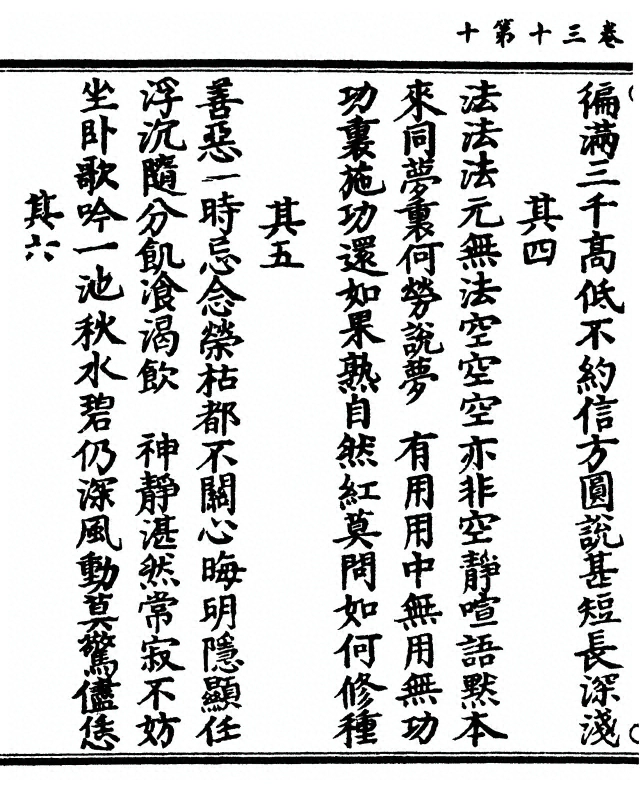 卷三十第十
徧滿三千高低不約信方圓說甚短長深淺
其四
法法法元無法空空空亦非空靜喧語默本
來同夢裏何勞說夢　有用用中無用無功
功裏施功還如果熟自然紅莫問如何修種
其五
善惡一時忘念榮枯都不關心晦明隱顯任
浮沉隨分飢飡渴飲　神靜湛然常寂不妨
坐卧歌吟一池秋水碧仍深風動莫驚儘恁
其六